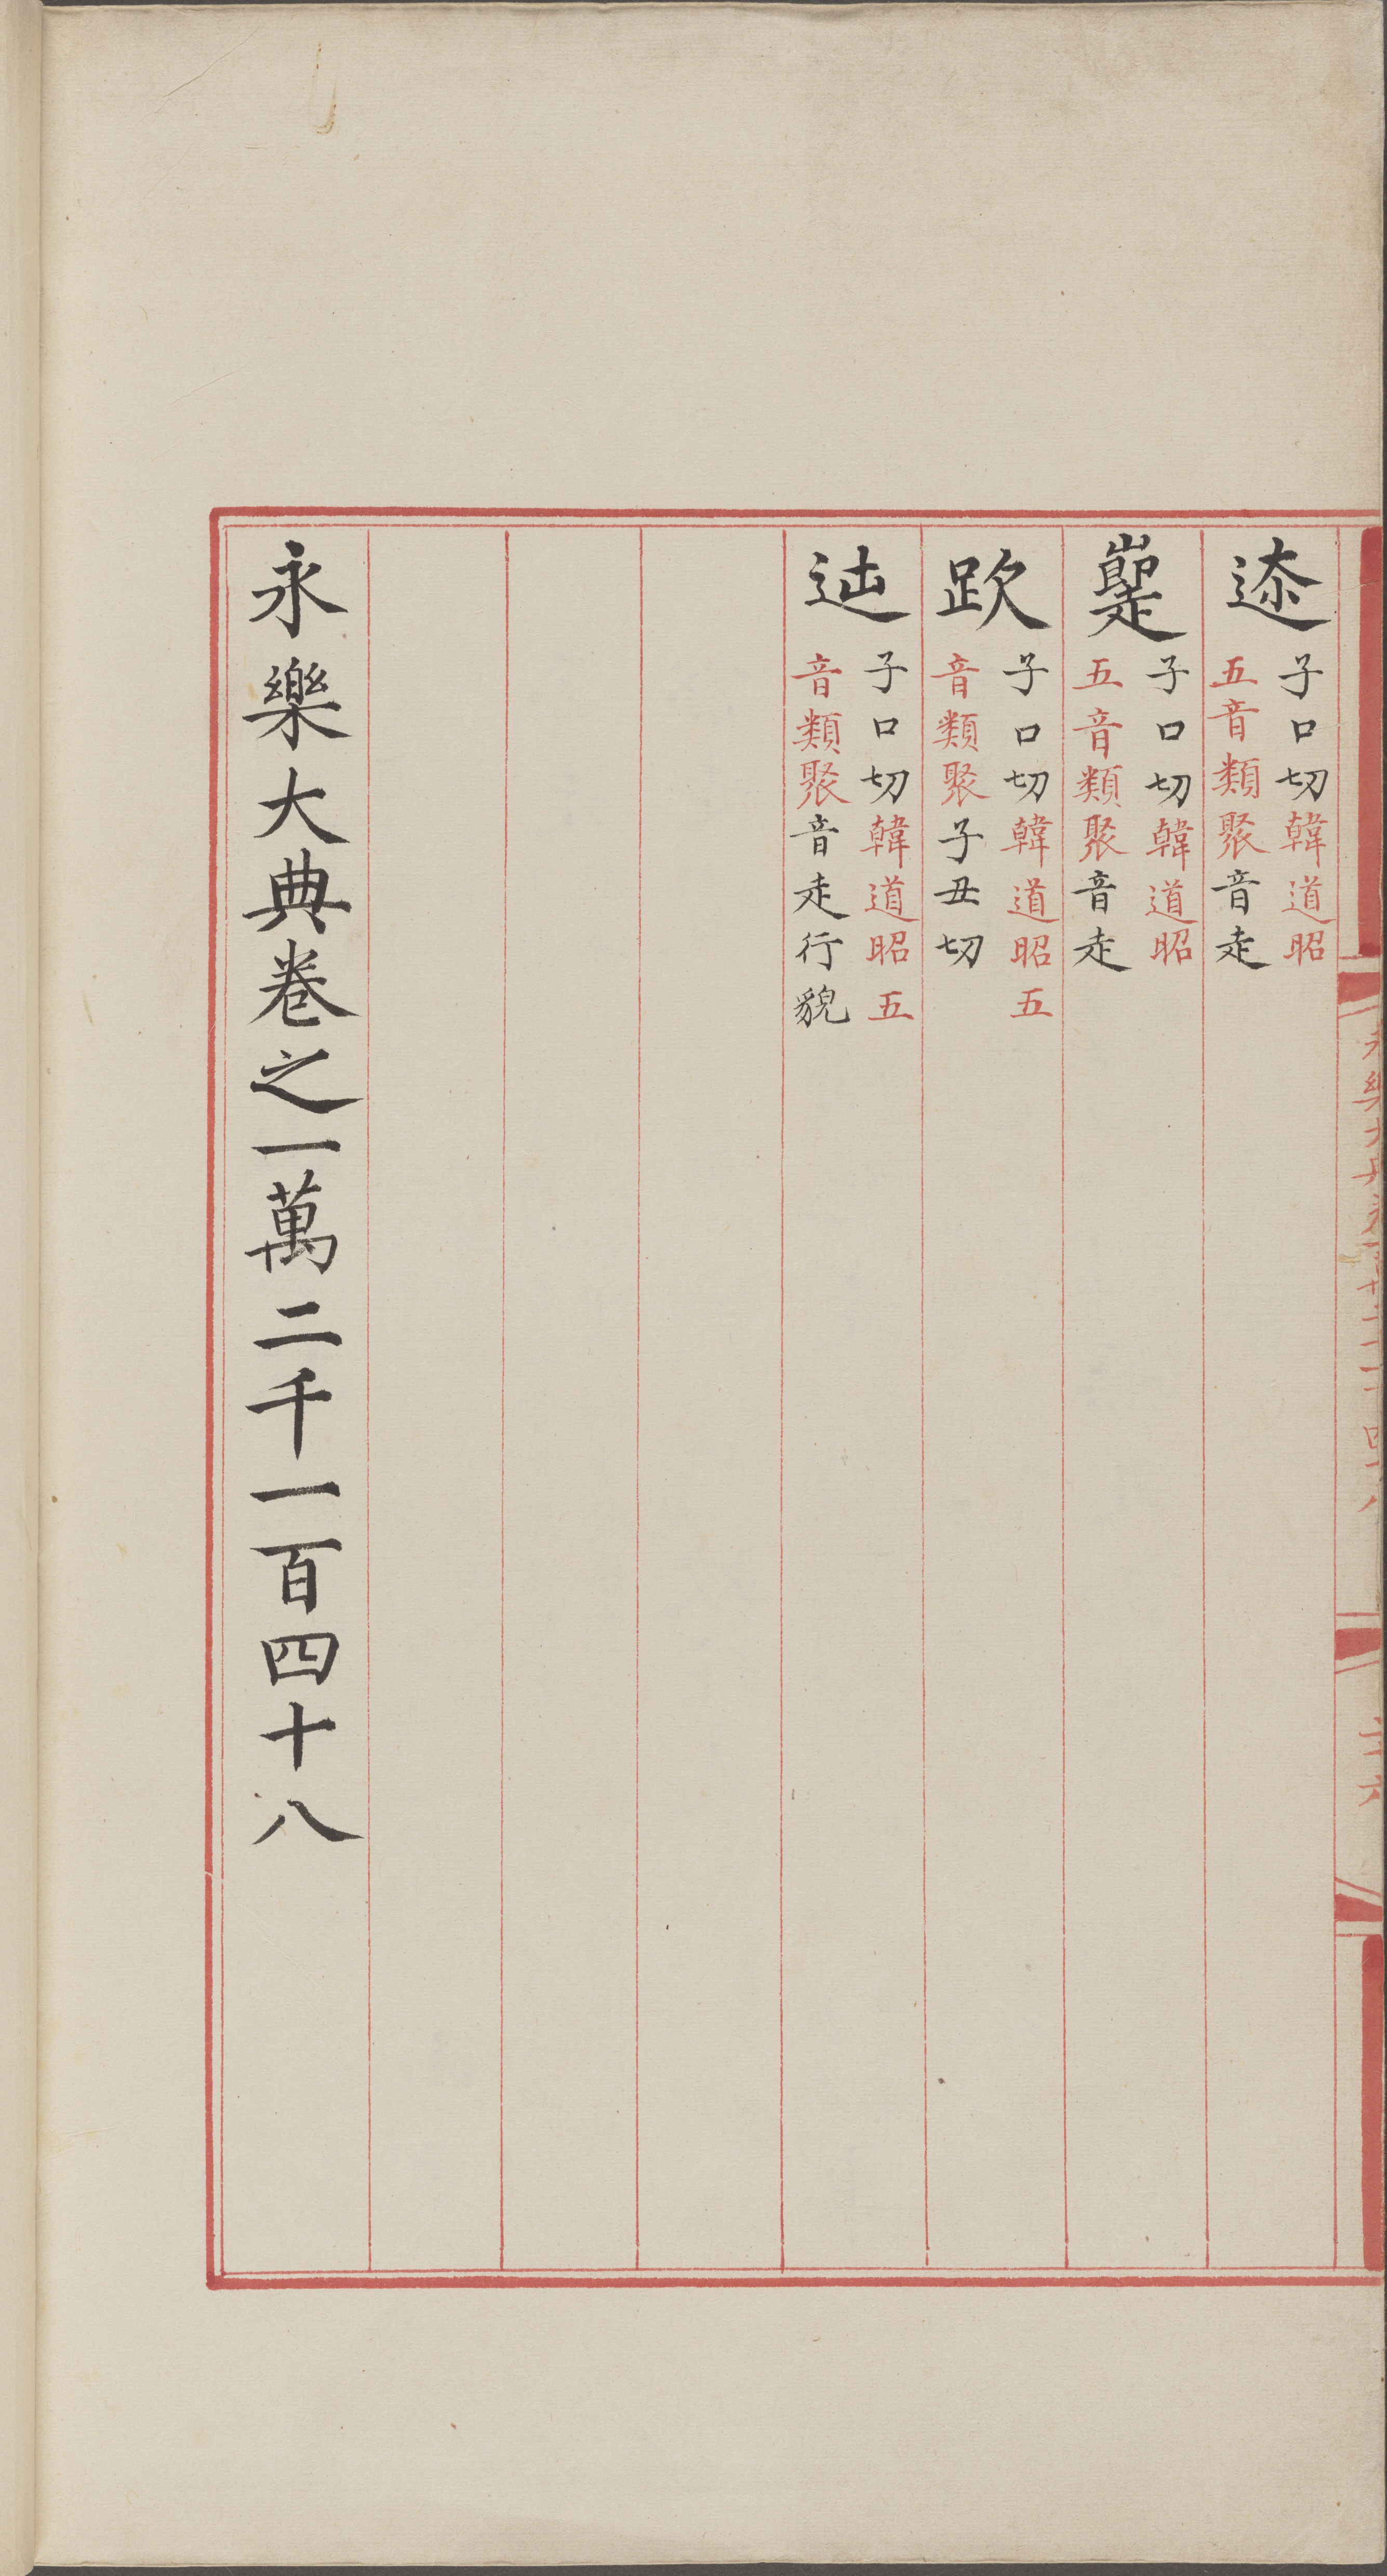 子口切韓道昭
五音類聚音走
子口切韓道昭
五音類聚音走
子口切韓道昭五
音類聚子丑切
子口切韓道昭五
音類聚音走行貌
永樂大典卷之一萬二千一百四十八